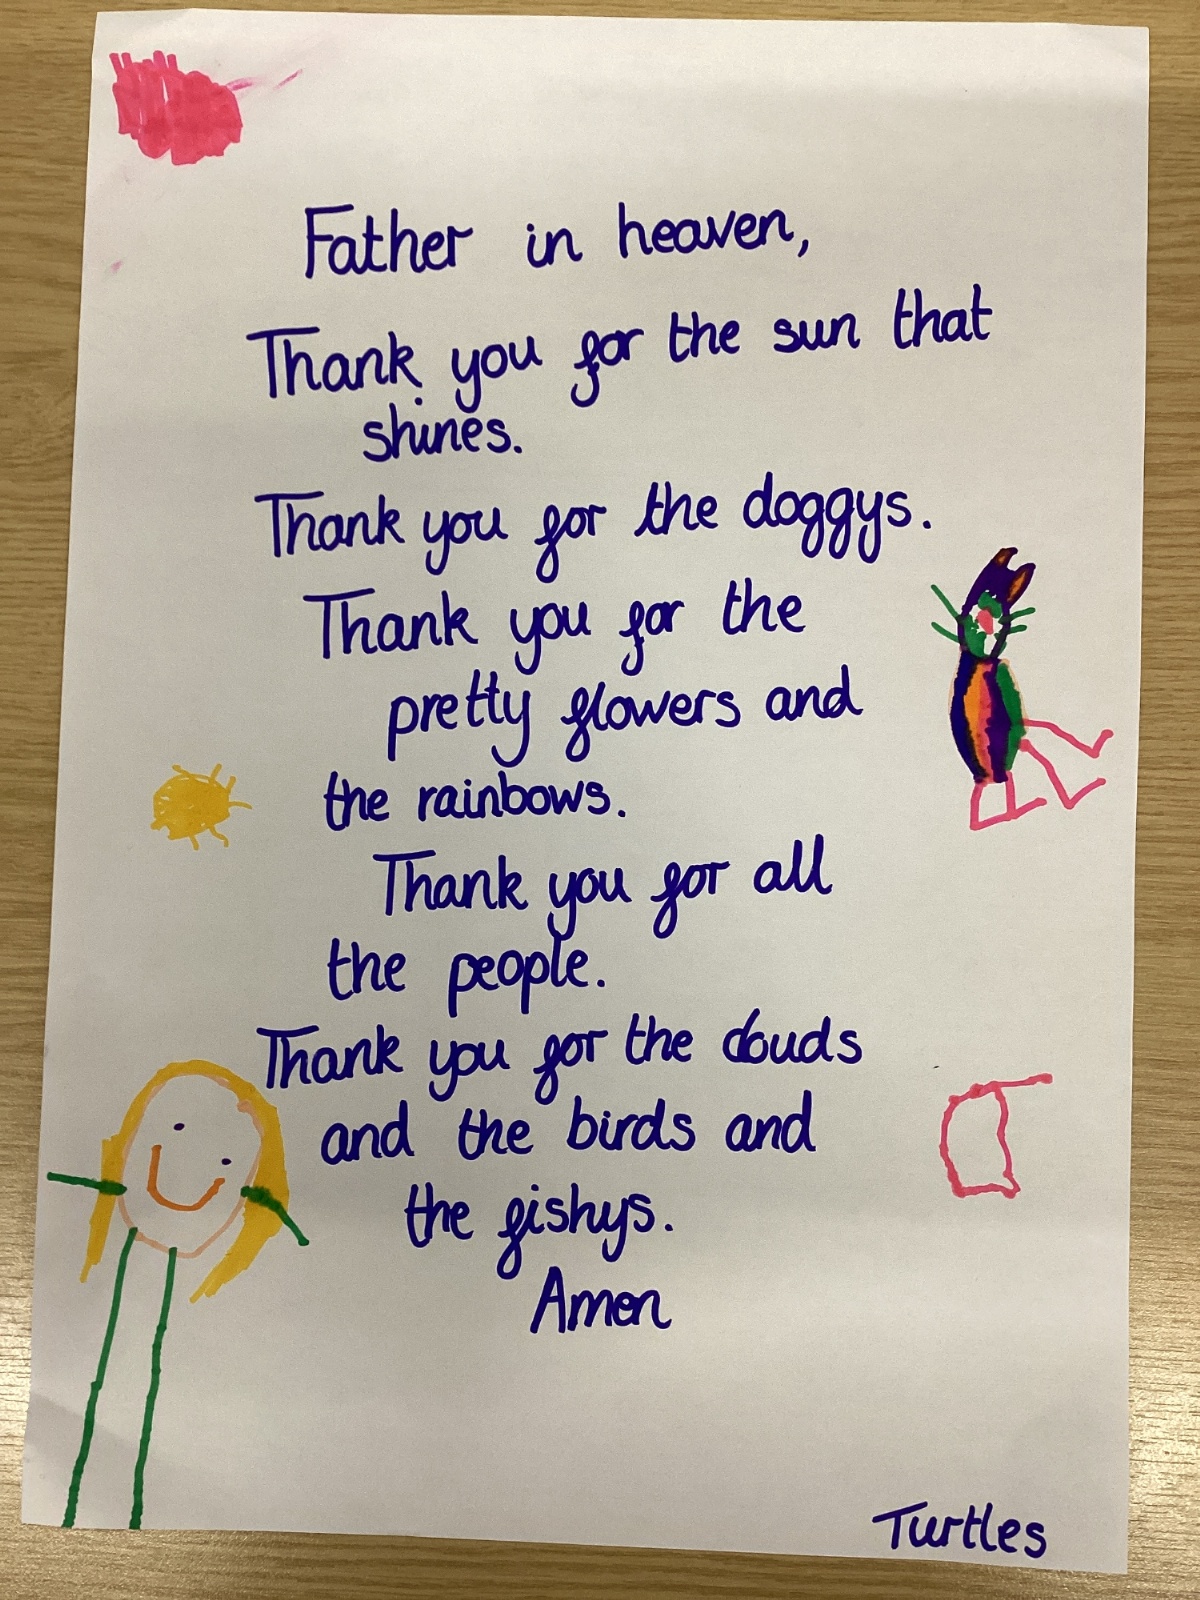 Father in heaven,
Thank you for the sun that
shines.
Thank you for the doggys.
Thank you for the
pretty flowers and
the rainbows.
Thank you for all
the people.
Thank you for the clouds
and the birds and
the fishys.
Amen
Turtles